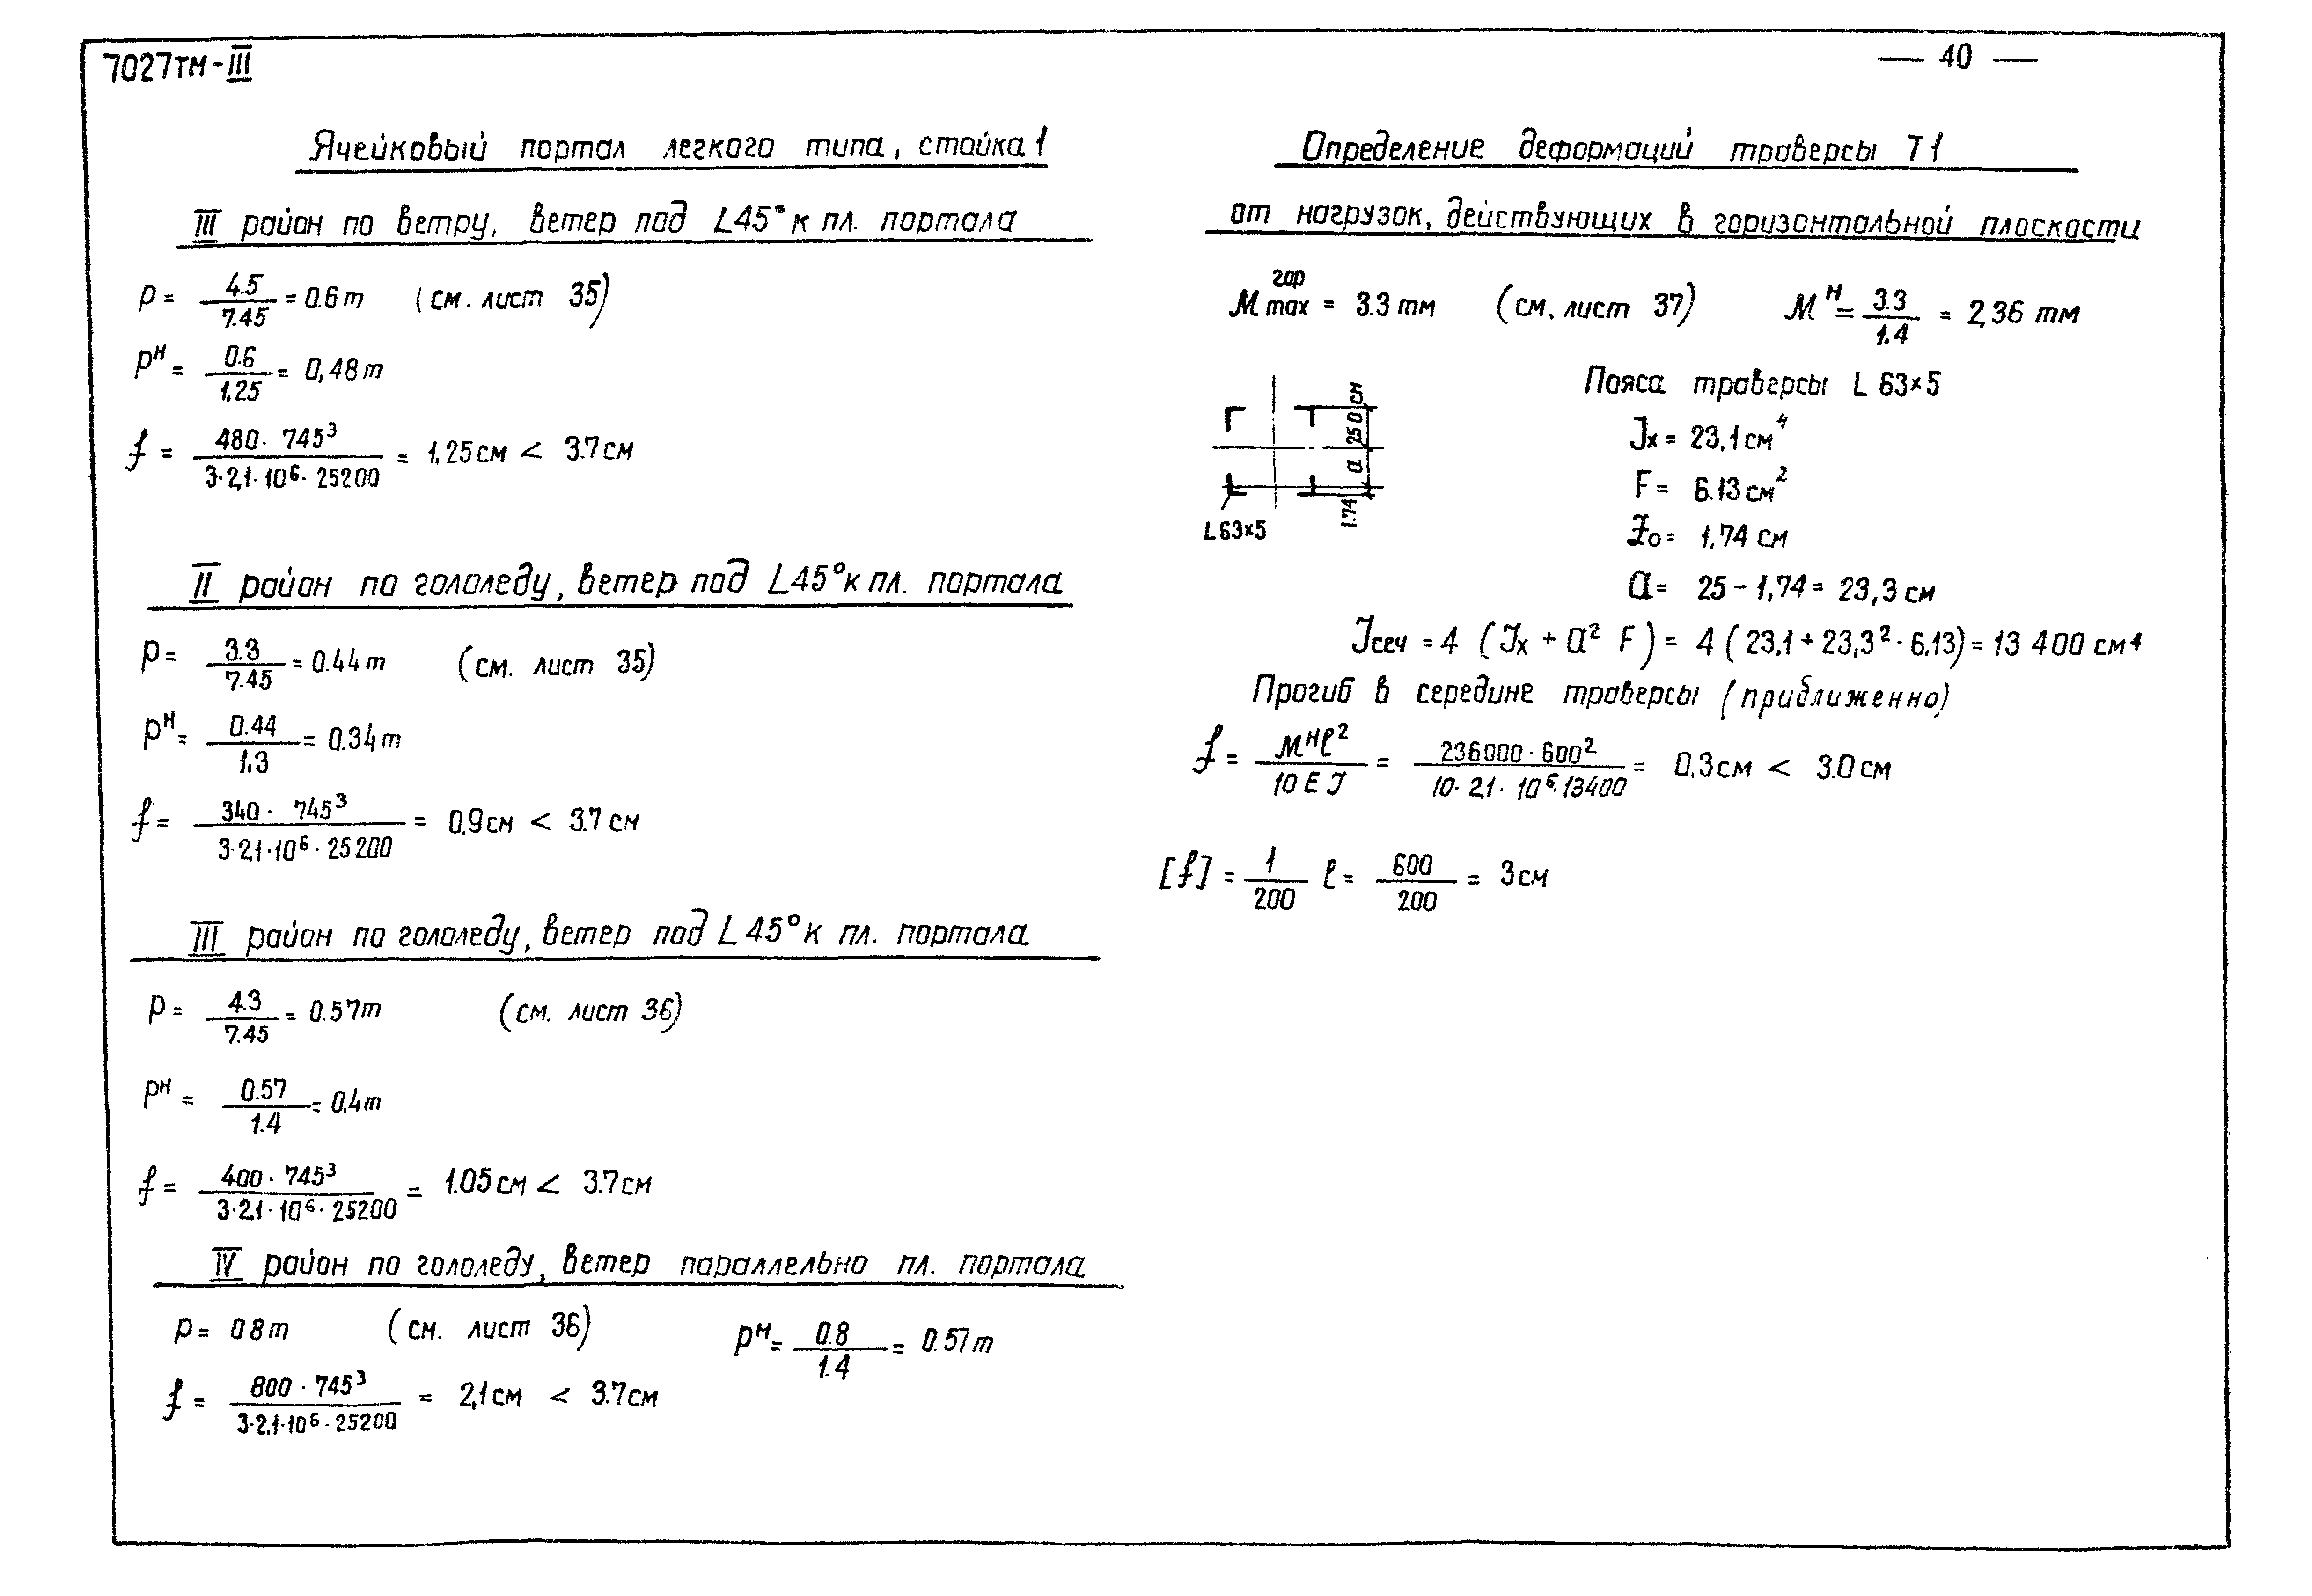 7027тм-III
— 40 —
Ячейковый портал легкого типа, стойка 1
III район по ветру, ветер под L45° к пл. портала
P = 4.5 / 7.45 = 0.6 т (см. лист 35)
Pᴴ = 0.6 / 1.25 = 0,48 т
f = 480 · 745³ / 3·2,1·10⁶·25200 = 1,25 см < 3.7 см
II район по гололеду, ветер под L45° к пл. портала
P = 3.3 / 7.45 = 0.44 т (см. лист 35)
Pᴴ = 0.44 / 1.3 = 0.34 т
f = 340 · 745³ / 3·2,1·10⁶·25200 = 0,9 см < 3.7 см
III район по гололеду, ветер под L45° к пл. портала
P = 4.3 / 7.45 = 0.57 т (см. лист 36)
Pᴴ = 0.57 / 1.4 = 0.4 т
f = 400 · 745³ / 3·2,1·10⁶·25200 = 1.05 см < 3.7 см
IV район по гололеду, ветер параллельно пл. портала
P = 0 8 т (см. лист 36) Pᴴ = 0.8 / 1.4 = 0.57 т
f = 800 · 745³ / 3·2,1·10⁶·25200 = 2,1 см < 3.7 см
Определение деформаций траверсы Т1
от нагрузок, действующих в горизонтальной плоскости
M гор max = 3.3 тм (см. лист 37) Mᴴ = 3.3 / 1.4 = 2,36 тм
Пояса траверсы L 63×5
25 0 см
a
1.74
L 63×5
Jx = 23,1 см⁴
F = 6.13 см²
Z₀ = 1,74 см
a = 25 - 1,74 = 23,3 см
Jсеч = 4 (Jx + a² F) = 4 (23,1 + 23,3² · 6,13) = 13 400 см⁴
Прогиб в середине траверсы (приближенно)
f = Mᴴℓ² / 10 E J = 236000 · 600² / 10 · 2,1 · 10⁶·13400 = 0,3 см < 3.0 см
[f] = 1 / 200 ℓ = 600 / 200 = 3 см